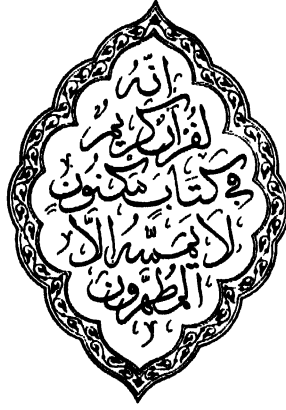 إنّه
لقرآن كريم
في كتاب مكنون
لا يمسّه إلّا
المطهرون